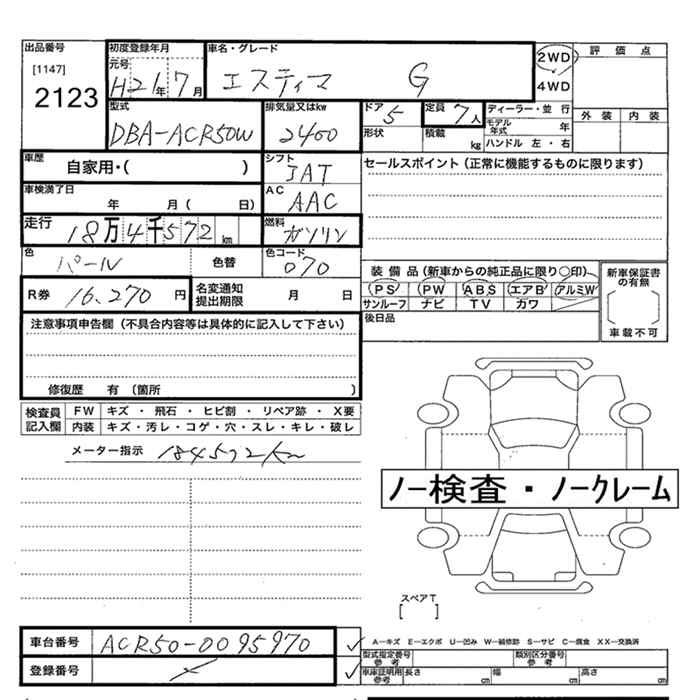 出品番号 初度登録年月 車名・グレード 2WD 評価点
[1147] 元号 H21年7月 エスティマ G 4WD
2123 外装 内装
型式 排気量又はkw ドア 5 定員 7人 ディーラー・並行
DBA-ACR50W 2400 形状 積載 kg モデル年式 年
ハンドル 左・右
車歴 自家用・( ) シフト IAT セールスポイント(正常に機能するものに限ります)
車検満了日 年 月( 日) AC AAC
走行 18万4千572km 燃料 ガソリン
色 パール 色替 色コード 070 装備品(新車からの純正品に限り○印) 新車保証書の有無
R券 16,270円 名変通知提出期限 月 日 PS PW ABS エアB アルミW
サンルーフ ナビ TV カワ
後日品 車載不可
注意事項申告欄(不具合内容等は具体的に記入して下さい)
修復歴 有(箇所 )
検査員記入欄 FW キズ・飛石・ヒビ割・リペア跡・X要
内装 キズ・汚レ・コゲ・穴・スレ・キレ・破レ
メーター指示 184572km
ノー検査・ノークレーム
スペアT
[ ]
車台番号 ACR50-0095970 A-キズ E-エクボ U-凹み W-補修跡 S-サビ C-腐食 XX-交換済
登録番号 型式指定番号 参考 類別区分番号 参考
車庫証明用参考 長さ cm 幅 cm 高さ cm